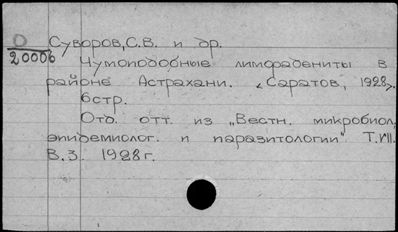 О Суворов, С.В. и др.
20006
Чумоподобные лимфадениты в
районе Астрахани. <Саратов, 1928>.
6стр.
Отд. отт. из „Вестн. микробиол,
эпидемиолог. и паразитологии" Т.VII.
В.3. 1928г.